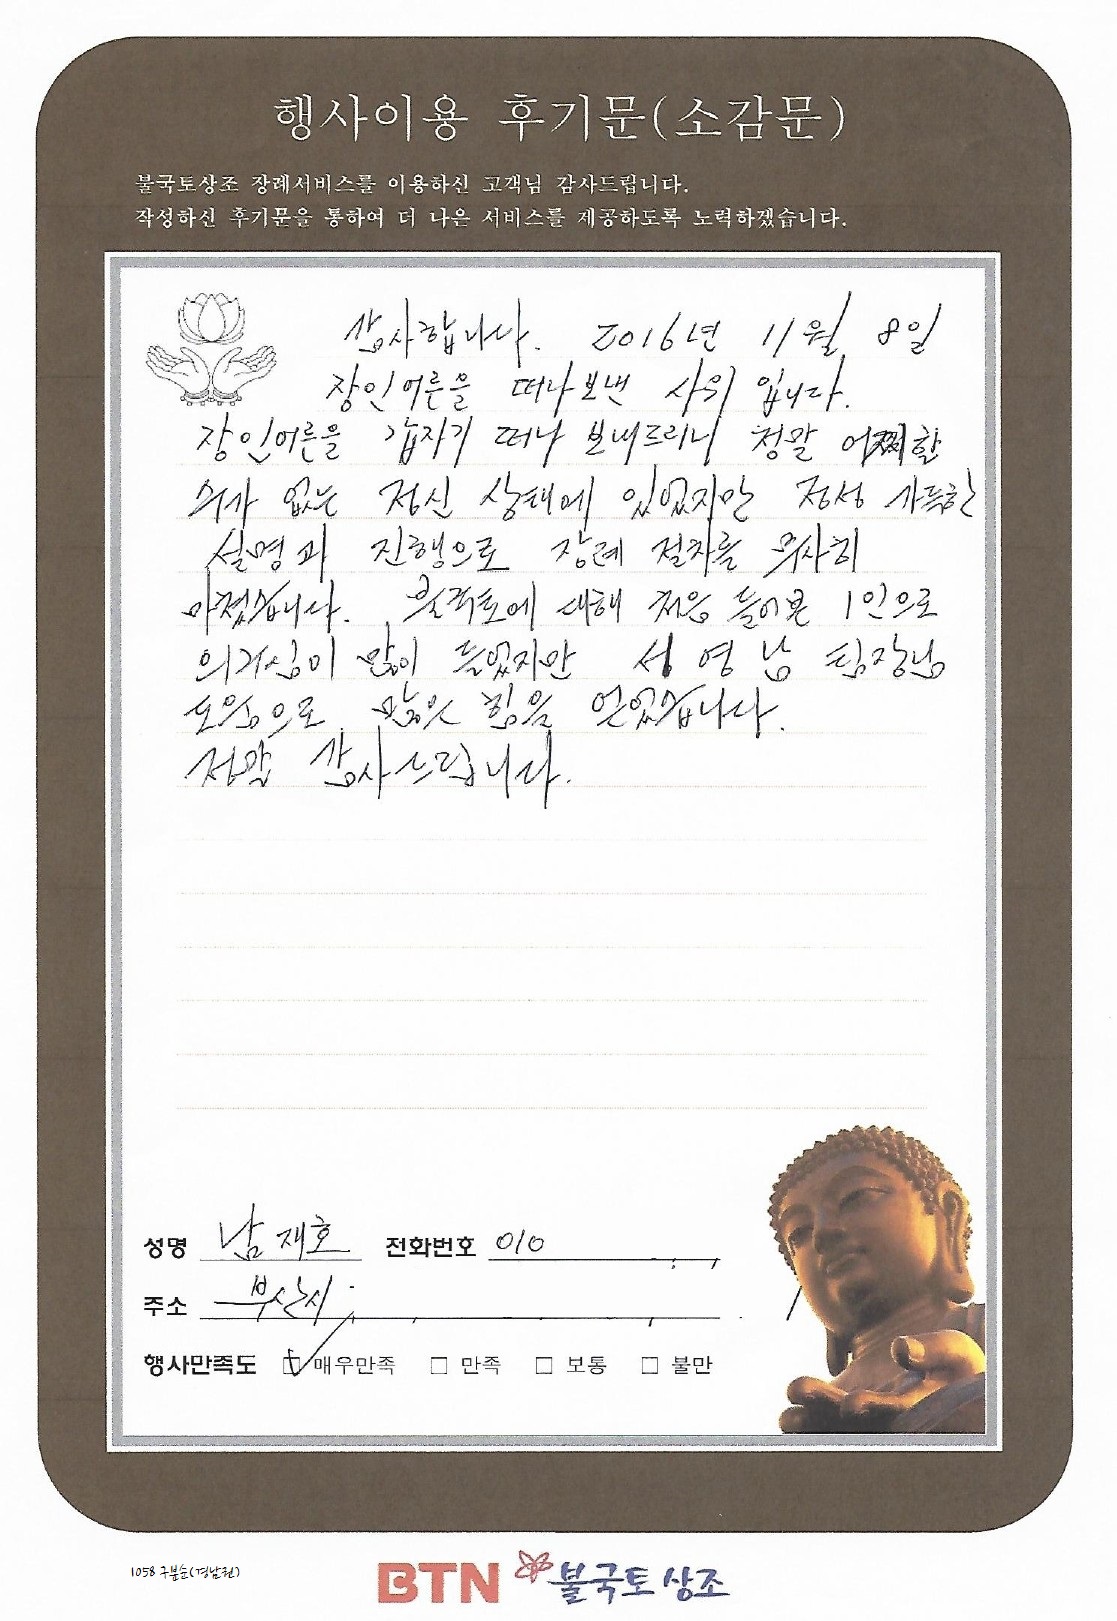 행사이용 후기문(소감문)
불국토상조 장례서비스를 이용하신 고객님 감사드립니다.
작성하신 후기문을 통하여 더 나은 서비스를 제공하도록 노력하겠습니다.
감사합니다. 2016년 11월 8일
장인어른을 떠나보낸 사위 입니다.
장인어른을 갑자기 떠나 보내드리니 정말 어찌할
수가 없는 정신 상태에 있었지만 정성 가득한
설명과 진행으로 장례 절차를 무사히
마쳤습니다. 불국토에 대해 처음 들어본 1인으로
의구심이 많이 들었지만 성영남 팀장님
도움으로 많은 힘을 얻었습니다.
정말 감사드립니다.
성명 남재호 전화번호 010
주소 부산시
행사만족도 ☑ 매우만족 □ 만족 □ 보통 □ 불만
1058 구분순(경남원)
BTN 불국토상조